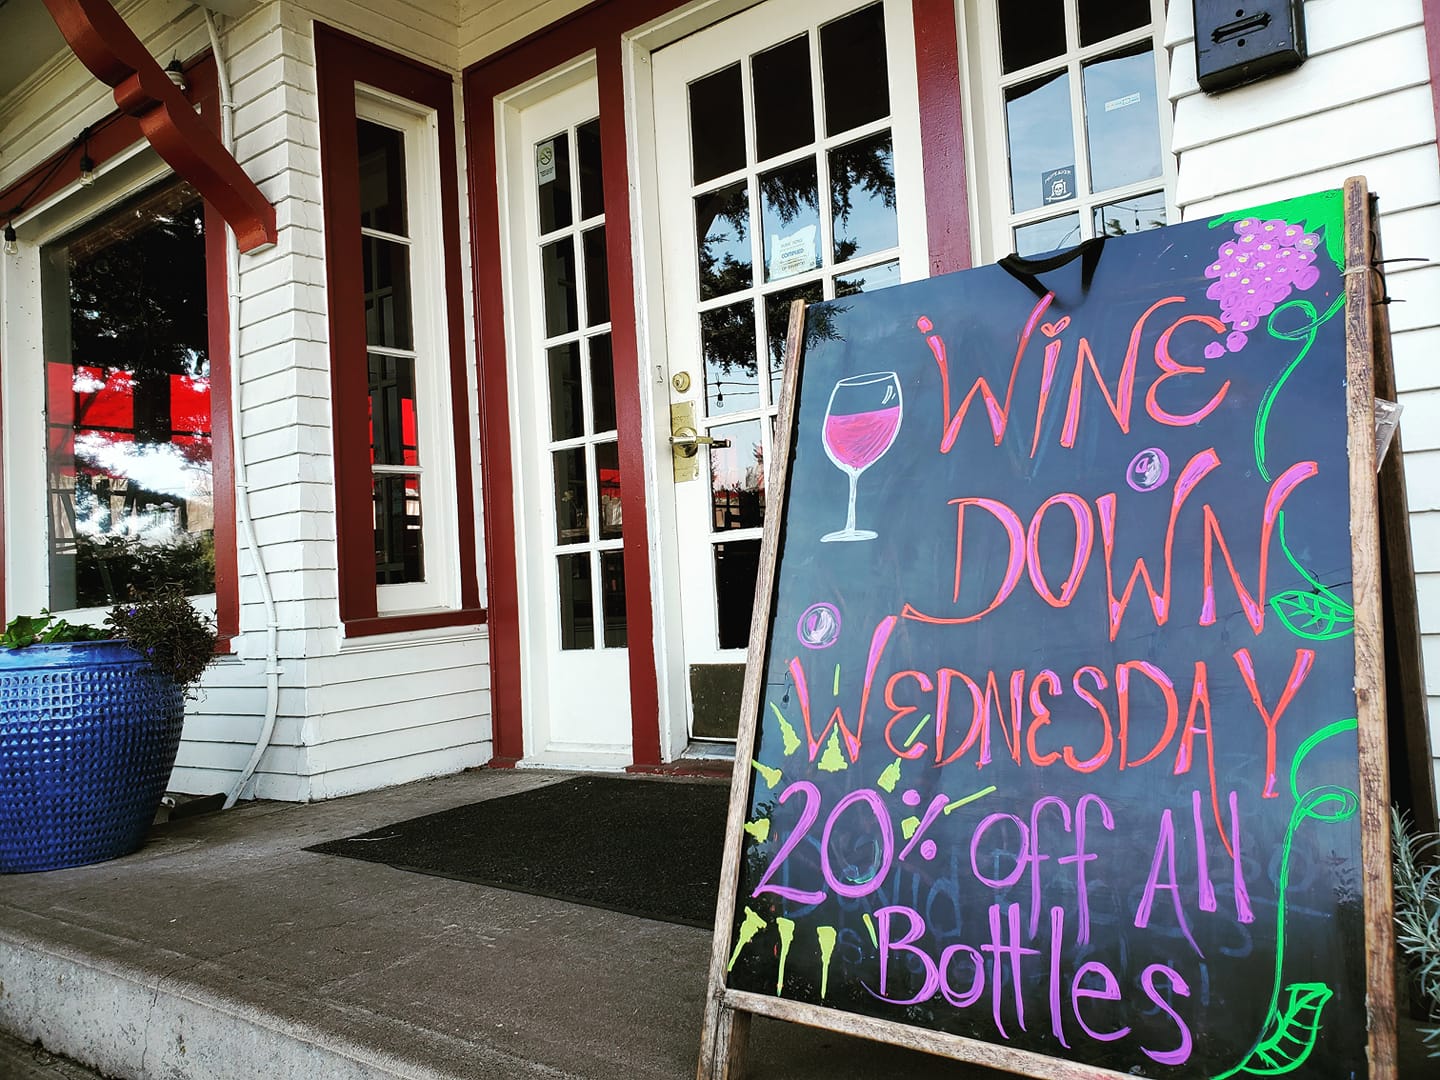 WINE
DOWN
WEDNESDAY
20% Off All
Bottles